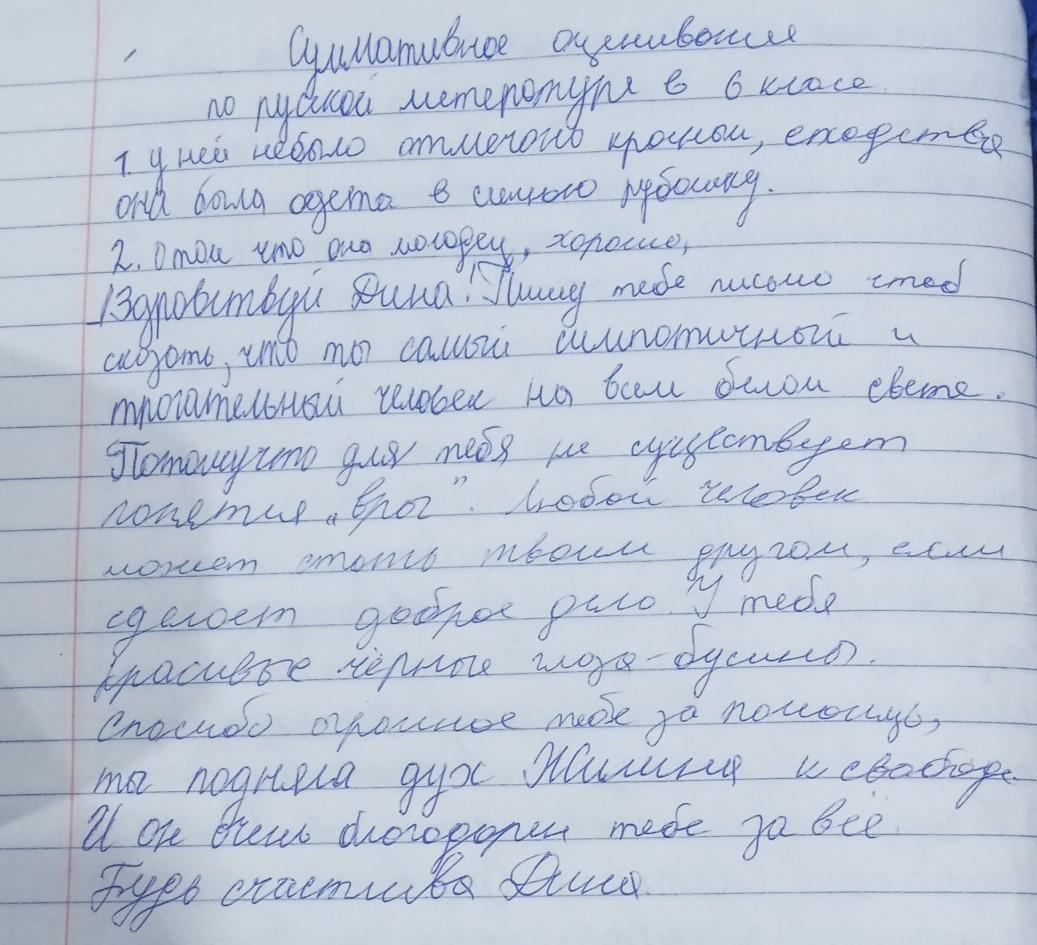 Суммативное оценивание
по руской литературе в 6 класе.
1. у ней небыло отмечоно красным, сходства
она была одета в синюю рубашку.
2. О том что она молодец, хорошо,
Здравствуй Дина! Пишу тебе письмо чтоб
сказать, что ты самый симпатичный и
трогательный человек на всём белом свете.
Потомучто для тебя не существует
понятия "враг". Любой человек
может стать твоим другом, если
сделает доброе дело. У тебя
красивые чёрные глаза-бусины.
Спасибо огромное тебе за помощь,
ты подняла дух Жилина к свабоде
И он очень благодарен тебе за всё.
Будь счастлива Дина.